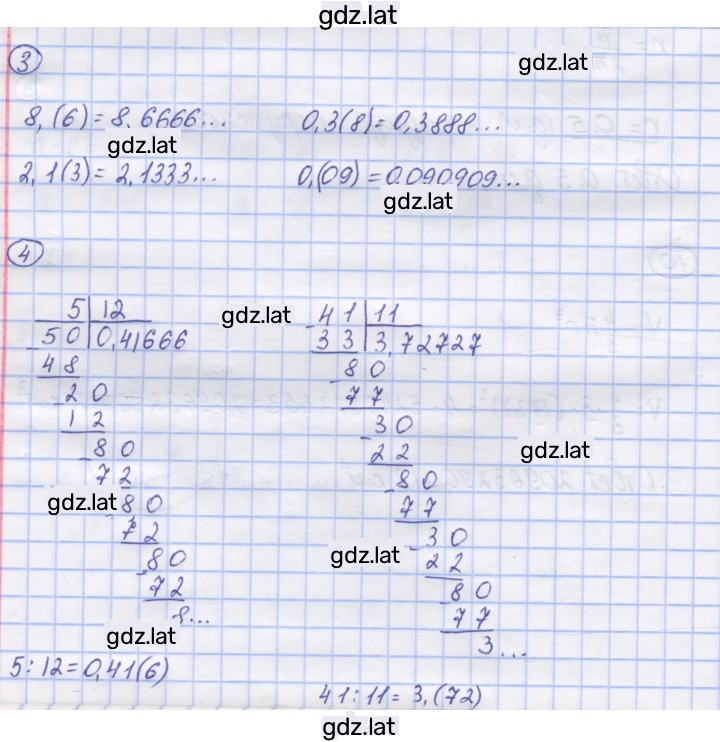 gdz.lat
3
gdz.lat
8,(6) = 8.6666... 0,3(8) = 0,3888...
gdz.lat
2,1(3) = 2,1333... 0,(09) = 0.090909...
gdz.lat
4
5 | 12 gdz.lat 41 | 11
50 | 0,41666 33 | 3,72727
48 80
20 77
12 30
80 22 gdz.lat
72 80
gdz.lat 80 77
72 30
80 gdz.lat 22
72 80
8... 77
gdz.lat 3...
5:12=0,41(6)
41:11= 3,(72)
gdz.lat